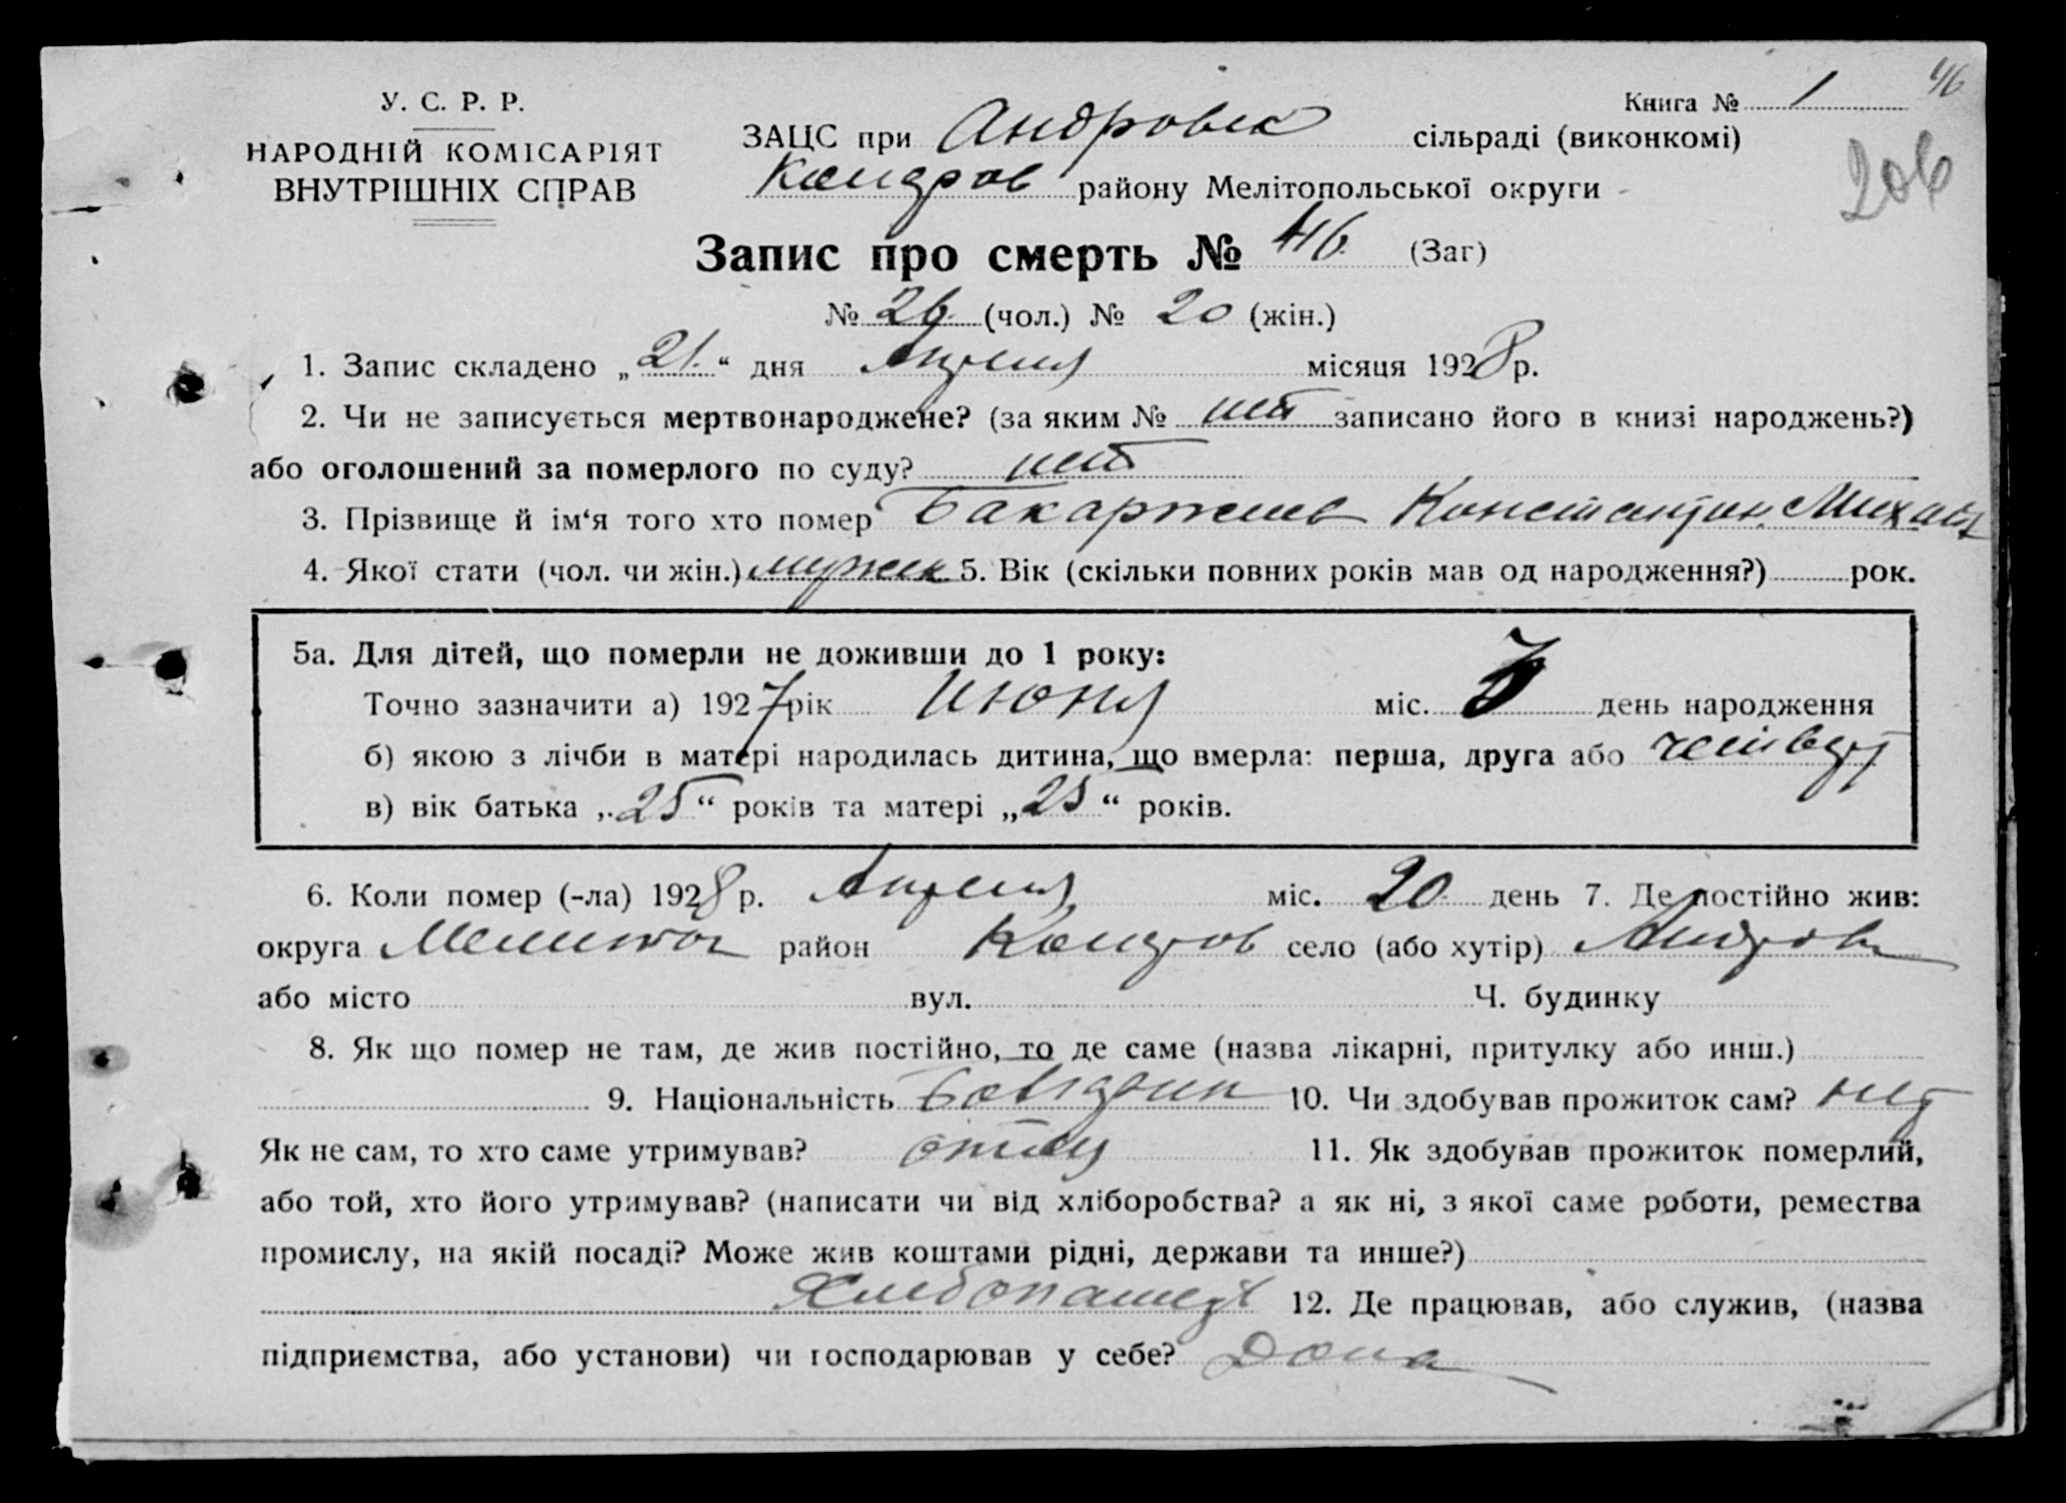 У. С. Р. Р.
НАРОДНІЙ КОМІСАРІЯТ
ВНУТРІШНІХ СПРАВ
Книга № 1
46
206
ЗАЦС при Андровск сільраді (виконкомі)
районy Мелітопольської округи
Запис про смерть № 46 (Заг)
№ 26 (чол.) № 20 (жін.)
1. Запис складено „21“ дня Апреля місяця 1928 р.
2. Чи не записується мертвонароджене? (за яким № нет записано його в книзі народжень?)
або оголошений за померлого по суду? нет
3. Прізвище й ім‘я того хто помер Бакаржиев Константин Михайл
4. Якої стати (чол. чи жін.) мужск 5. Вік (скільки повних років мав од народження?) рок.
5а. Для дітей, що померли не доживши до 1 року:
Точно зазначити а) 1927 рік Июня міс. 7 день народження
б) якою з лічби в матері народилась дитина, що вмерла: перша, друга або четверт
в) вік батька „25“ років та матері „25“ років.
6. Коли помер (-ла) 1928 р. Апреля міс. 20 день 7. Де постійно жив:
округа Мелитоп район село (або хутір) Андровк
або місто вул. Ч. будинку
8. Як що помер не там, де жив постійно, то де саме (назва лікарні, притулку або инш.)
9. Національність 10. Чи здобував прожиток сам? нет
Як не сам, то хто саме утримував? отец 11. Як здобував прожиток померлий,
або той, хто його утримував? (написати чи від хліборобства? а як ні, з якої саме роботи, ремества
промислу, на якій посаді? Може жив коштами рідні, держави та инше?)
Хлебопашец 12. Де працював, або служив, (назва
підприємства, або установи) чи господарював у себе? Дома